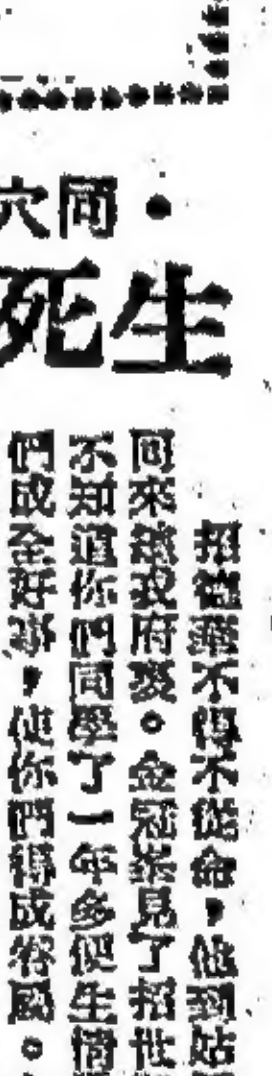 ・同穴
生死
招華不得不從命，他到姑
來府裏。金冠見了招世
不知道你們同學了一年多便生情
們成全好事，使你們得成眷屬。